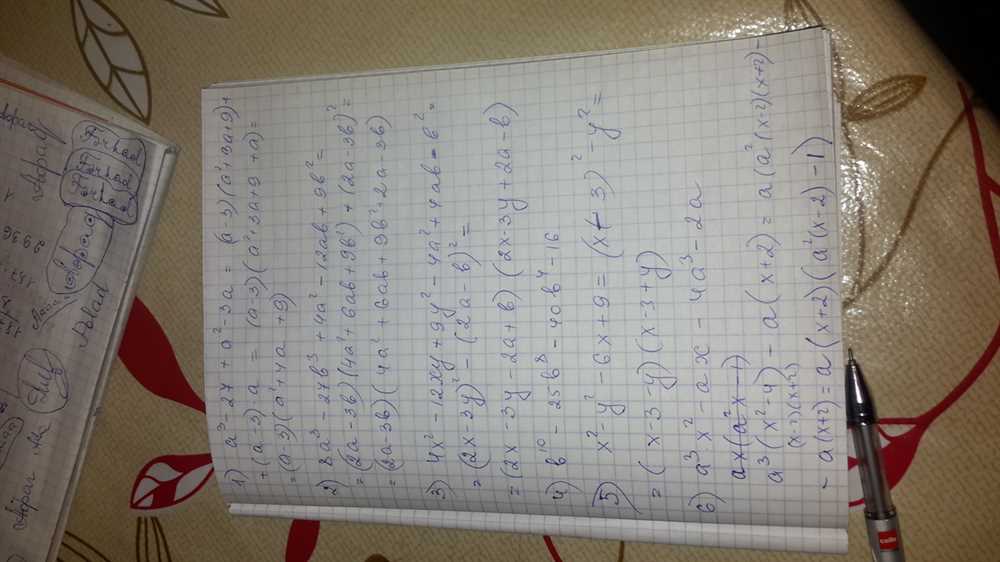 1) a³-27+a²-3a = (a-3)(a²+3a+9)+
+(a-3)a = (a-3)(a²+3a+9+a)=
=(a-3)(a²+4a+9)
2) 8a³-27b³+4a²-12ab+9b²=
=(2a-3b)(4a²+6ab+9b²)+(2a-3b)²=
=(2a-3b)(4a²+6ab+9b²+2a-3b)
3) 4x²-12xy+9y²-4a²+4ab-b²=
=(2x-3y)²-(2a-b)²=
=(2x-3y-2a+b)(2x-3y+2a-b)
4) b¹⁰-25b⁸-40b⁴-16
5) x²-y²-6x+9=(x-3)²-y²=
=(x-3-y)(x-3+y)
6) a³x²-ax-4a³-2a
ax(a²x-1)
a³(x²-4)-a(x+2)=a(a²(x-2)(x+2)-
(x-2)(x+2)
-a(x+2)=a(x+2)(a²(x-2)-1)
Farhad
Farhad
Farhad
Polad
2936
cello